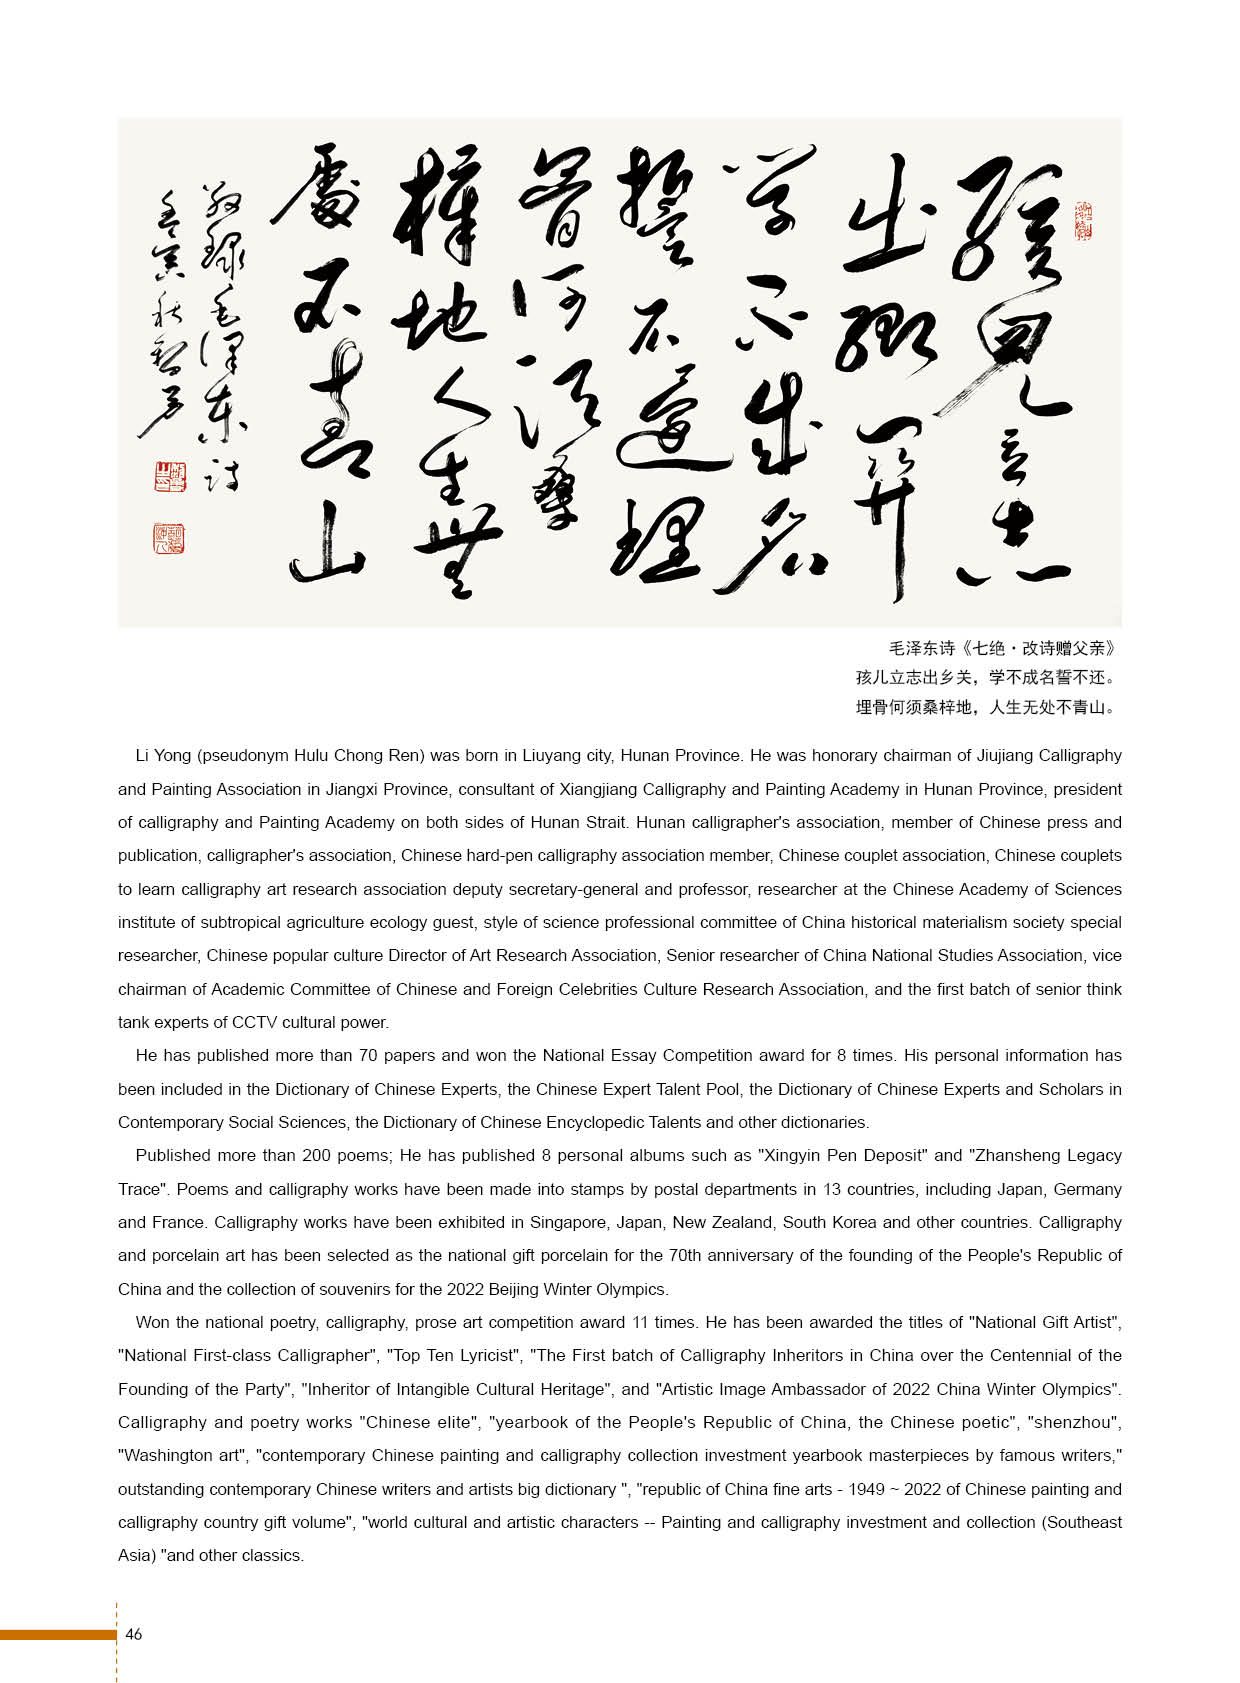 孩兒立志
出鄉關
学不成名
誓不還埋
骨何須桑
梓地人生無
處不青山
敬録毛澤東詩
壬寅秋
毛泽东诗《七绝·改诗赠父亲》
孩儿立志出乡关，学不成名誓不还。
埋骨何须桑梓地，人生无处不青山。
Li Yong (pseudonym Hulu Chong Ren) was born in Liuyang city, Hunan Province. He was honorary chairman of Jiujiang Calligraphy
and Painting Association in Jiangxi Province, consultant of Xiangjiang Calligraphy and Painting Academy in Hunan Province, president
of calligraphy and Painting Academy on both sides of Hunan Strait. Hunan calligrapher's association, member of Chinese press and
publication, calligrapher's association, Chinese hard-pen calligraphy association member, Chinese couplet association, Chinese couplets
to learn calligraphy art research association deputy secretary-general and professor, researcher at the Chinese Academy of Sciences
institute of subtropical agriculture ecology guest, style of science professional committee of China historical materialism society special
researcher, Chinese popular culture Director of Art Research Association, Senior researcher of China National Studies Association, vice
chairman of Academic Committee of Chinese and Foreign Celebrities Culture Research Association, and the first batch of senior think
tank experts of CCTV cultural power.
He has published more than 70 papers and won the National Essay Competition award for 8 times. His personal information has
been included in the Dictionary of Chinese Experts, the Chinese Expert Talent Pool, the Dictionary of Chinese Experts and Scholars in
Contemporary Social Sciences, the Dictionary of Chinese Encyclopedic Talents and other dictionaries.
Published more than 200 poems; He has published 8 personal albums such as "Xingyin Pen Deposit" and "Zhansheng Legacy
Trace". Poems and calligraphy works have been made into stamps by postal departments in 13 countries, including Japan, Germany
and France. Calligraphy works have been exhibited in Singapore, Japan, New Zealand, South Korea and other countries. Calligraphy
and porcelain art has been selected as the national gift porcelain for the 70th anniversary of the founding of the People's Republic of
China and the collection of souvenirs for the 2022 Beijing Winter Olympics.
Won the national poetry, calligraphy, prose art competition award 11 times. He has been awarded the titles of "National Gift Artist",
"National First-class Calligrapher", "Top Ten Lyricist", "The First batch of Calligraphy Inheritors in China over the Centennial of the
Founding of the Party", "Inheritor of Intangible Cultural Heritage", and "Artistic Image Ambassador of 2022 China Winter Olympics".
Calligraphy and poetry works "Chinese elite", "yearbook of the People's Republic of China, the Chinese poetic", "shenzhou",
"Washington art", "contemporary Chinese painting and calligraphy collection investment yearbook masterpieces by famous writers,"
outstanding contemporary Chinese writers and artists big dictionary ", "republic of China fine arts - 1949 ~ 2022 of Chinese painting and
calligraphy country gift volume", "world cultural and artistic characters -- Painting and calligraphy investment and collection (Southeast
Asia) "and other classics.
46